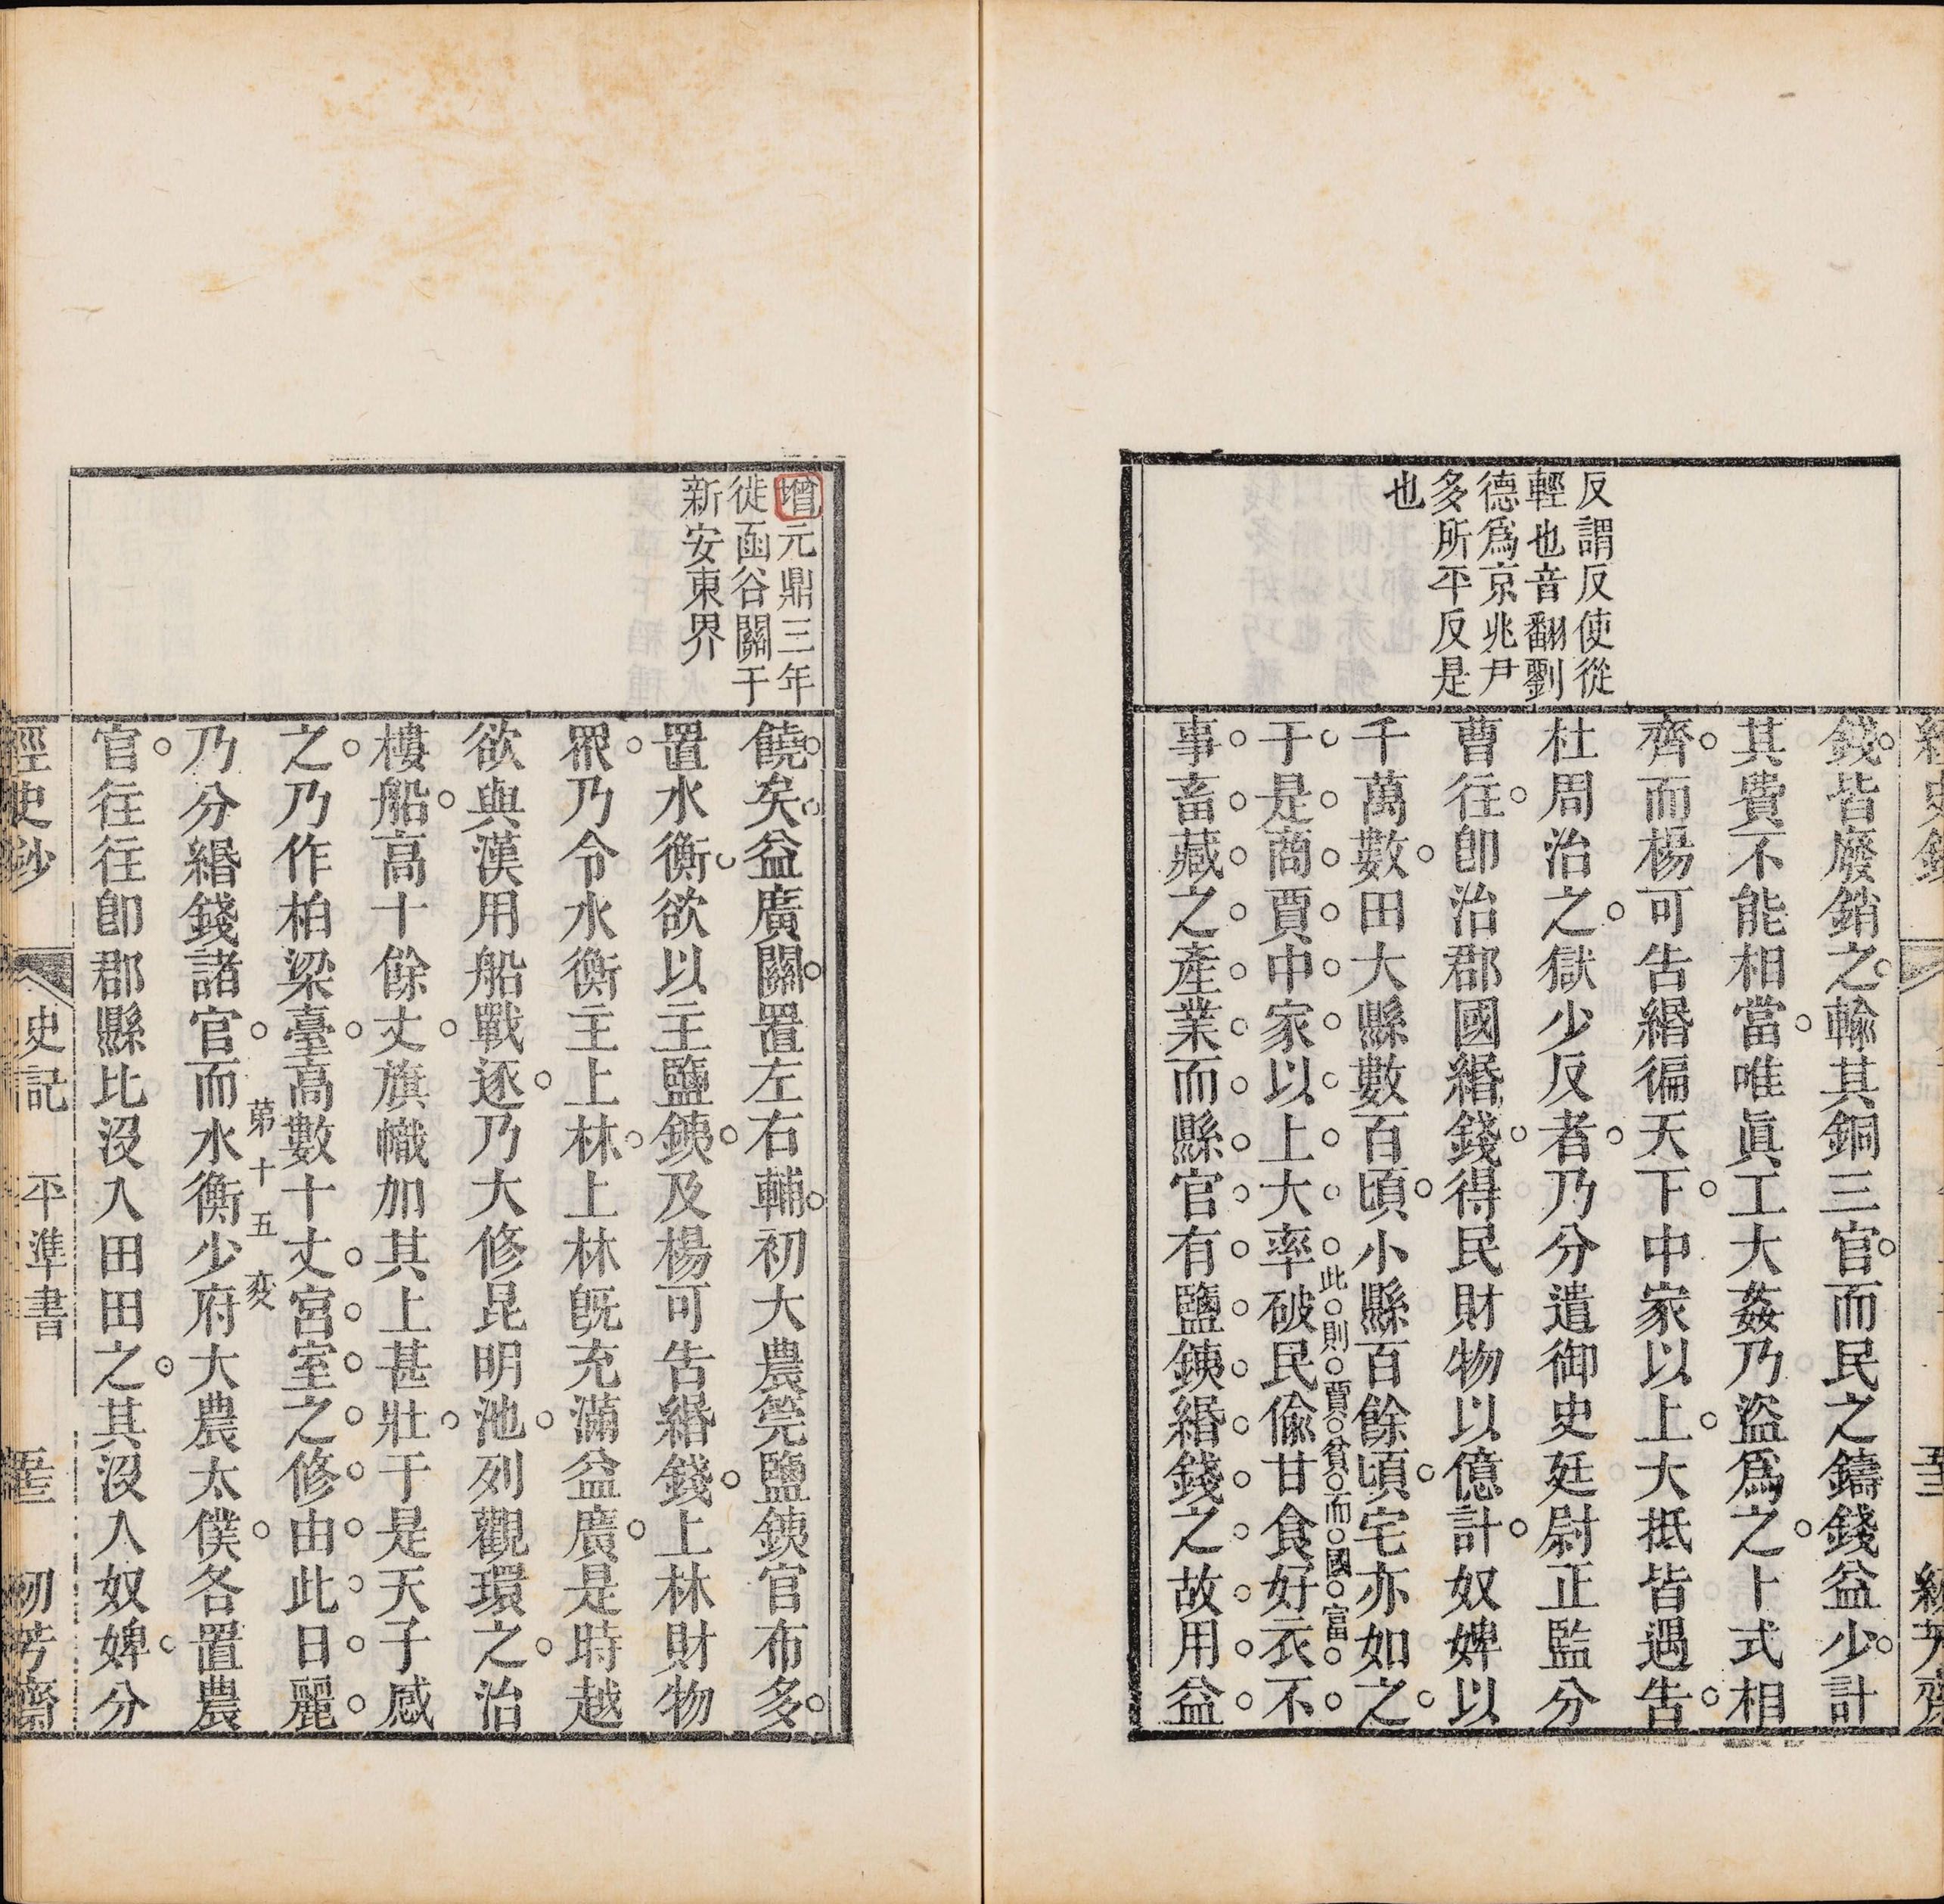 反謂反使從
輕也音翻劉
德爲京兆尹
多所平反是
也
錢皆廢銷之輸其銅三官而民之鑄錢益少計
其費不能相當唯眞工大姦乃盜爲之卜式相
齊而楊可告緡徧天下中家以上大抵皆遇告
杜周治之獄少反者乃分遣御史廷尉正監分
曹往卽治郡國緡錢得民財物以億計奴婢以
千萬數田大縣數百頃小縣百餘頃宅亦如之
此則賈貧而國富
于是商賈中家以上大率破民偸甘食好衣不
事畜藏之產業而縣官有鹽鐵緡錢之故用益
增元鼎三年
徙函谷關于
新安東界
饒矣益廣關置左右輔初大農筦鹽鐵官布多
置水衡欲以主鹽鐵及楊可告緡錢上林財物
眾乃令水衡主上林上林旣充滿益廣是時越
欲與漢用船戰逐乃大修昆明池列觀環之治
樓船高十餘丈旗幟加其上甚壯于是天子感
之乃作柏梁臺高數十丈宮室之修由此日麗
第十五変
乃分緡錢諸官而水衡少府大農太僕各置農
官往往卽郡縣比沒入田田之其沒入奴婢分
經史鈔 史記 平準書 初芳齋